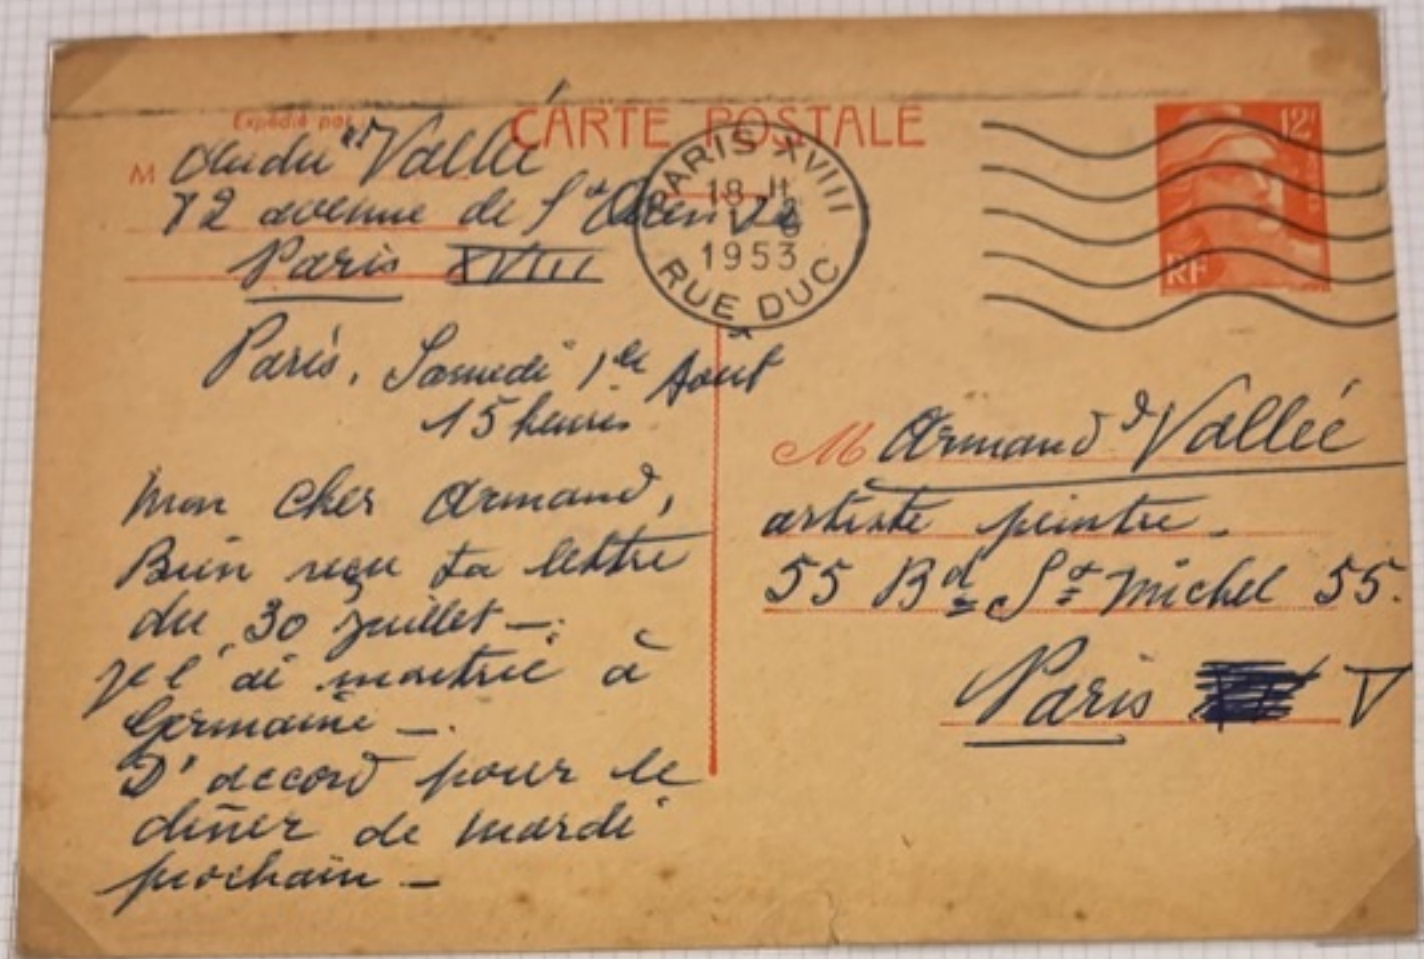 CARTE POSTALE
Expédié par
M André d'Vallée
72 avenue de St Ouen
Paris XVIII
PARIS XVIII
18 H
1 - 8
1953
RUE DUC
12F
RF
Paris, Samedi 1er Août
15 heures
Mon cher Armand,
Bien reçu ta lettre
du 30 juillet —
je l'ai montrée à
Germaine —
D'accord pour le
dîner de mardi
prochain —
M Armand d'Vallée
artiste peintre -
55 Bd St Michel 55.
Paris V